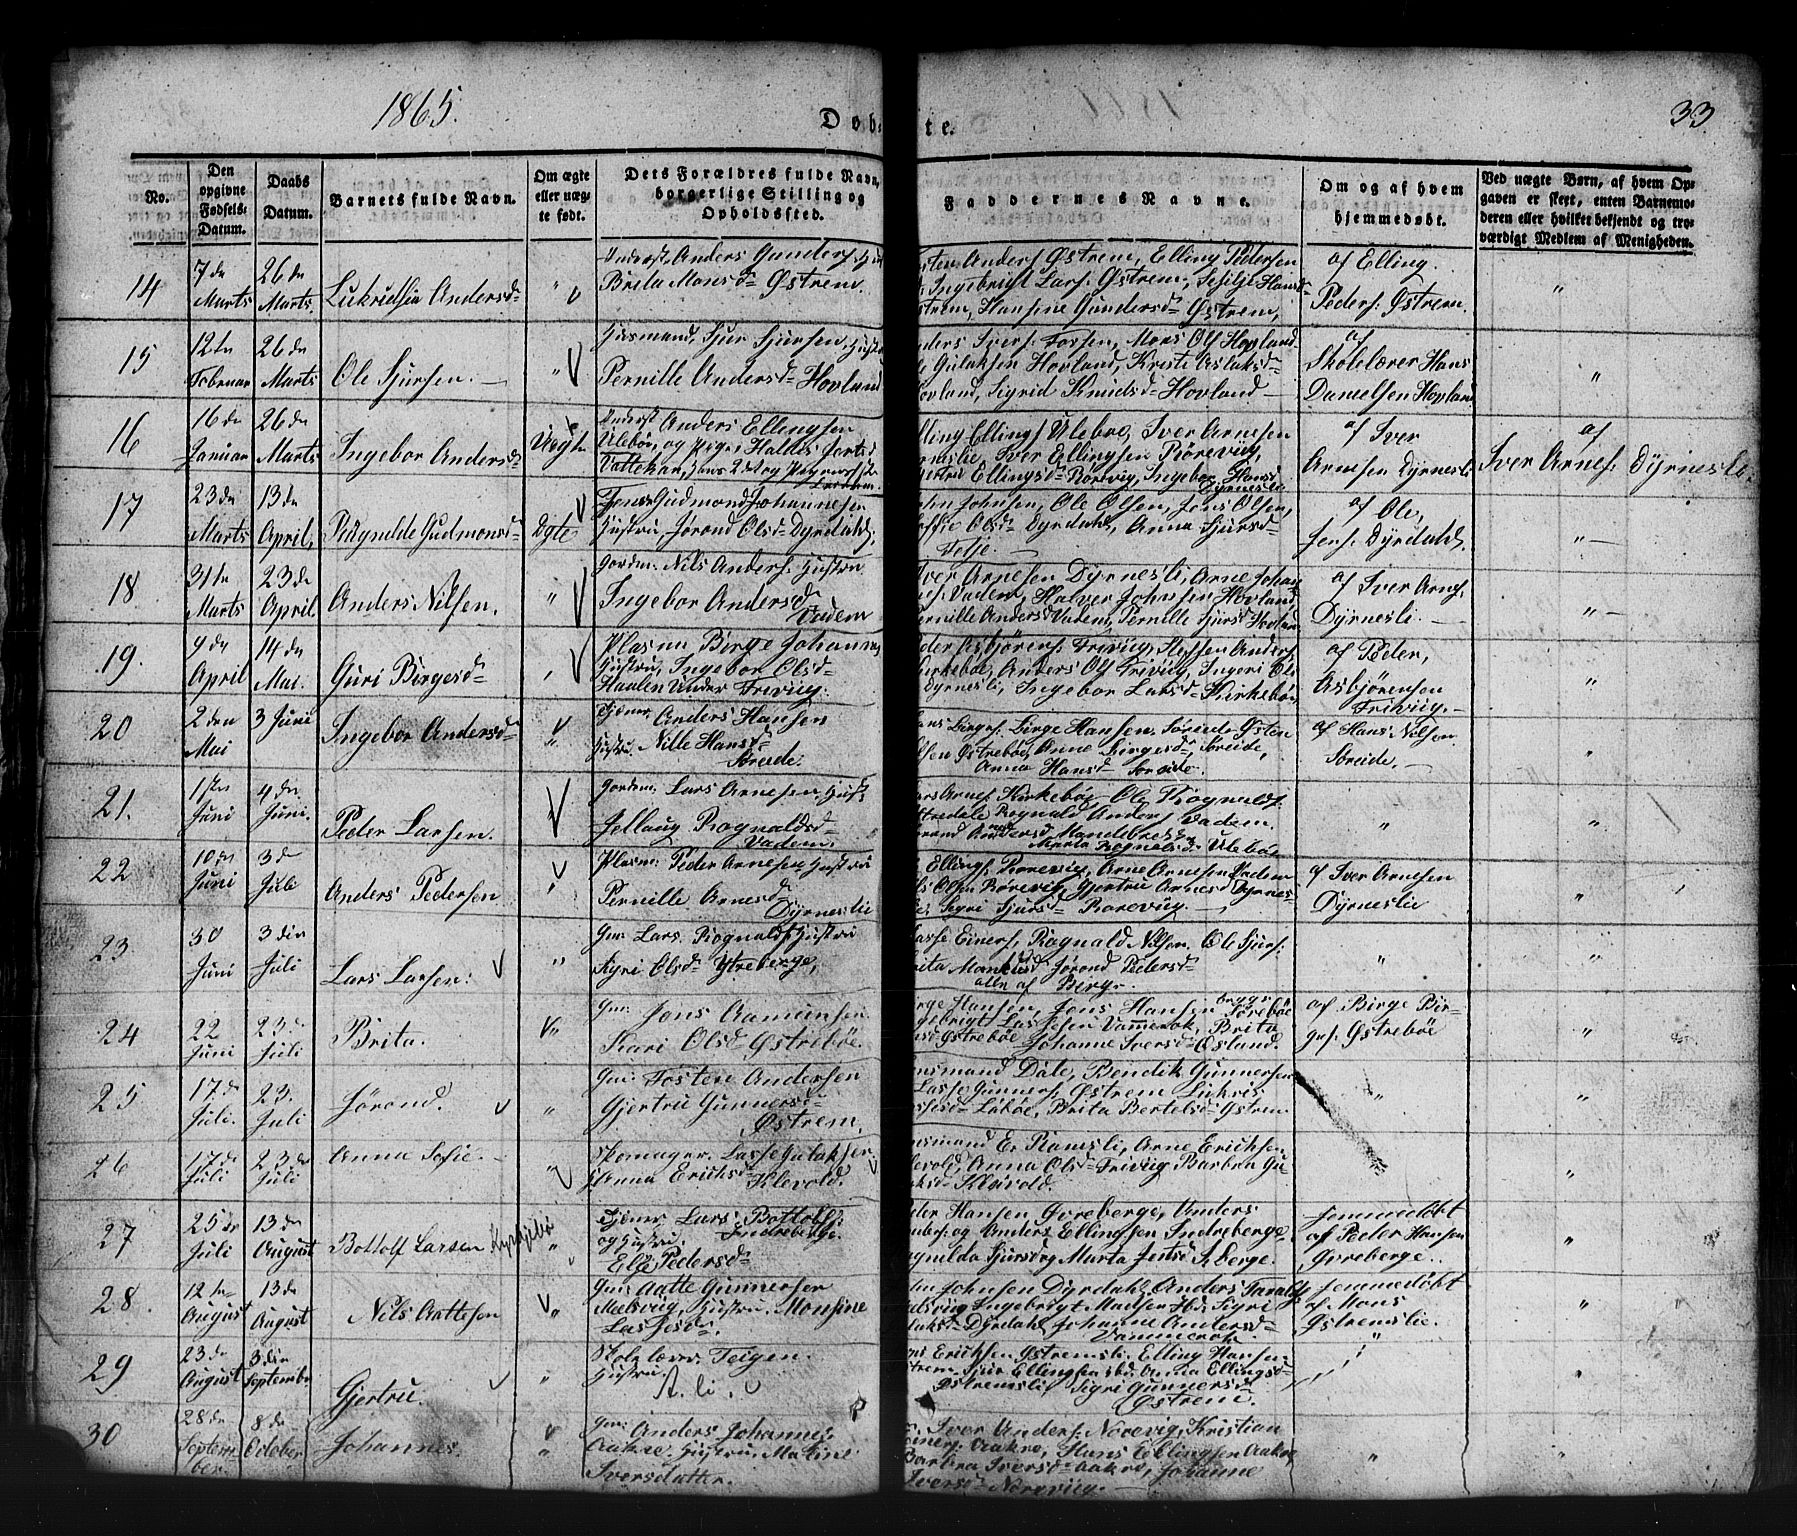 1865.
Døb-
te.
33
No.
Den opgivne Fødsels-Datum.
Daabs Datum.
Barnets fulde Navn.
Om ægte eller uægte født.
Dets Forældres fulde Navn, borgerlige Stilling og Opholdsted.
Faddernes Navne.
Om og af hvem hjemmedøbt.
Ved uægte Børn, af hvem Opgaven er skeet, enten Barnemoderen eller hvilket bekjendt og troværdigt Medlem af Menigheden.
14
7de Marts
26de Marts.
Lukridsia Andersd
"
Anders Gunders
Brita Monsd Østrem.
Anders Østrem, Elling Pedersen
Ingebrigt Lars. Østrem, Hansine Gundersd Østrem,
af Elling
Peders. Østrem.
"
15
12te Februar
26de Marts
Ole Sjursen.
"
Huusmand, Sjur Sjursen,
Pernille Andersd Hovland
Ivers. Fossen, Mons Ols Hovland
Gulaksen Hovland, Kristi Aslaksd
Hovland, Sigrid Knudsd Hovland
af
Skolelærer Hans
Danielsen Hovland
"
16
16de Januar
26de Marts
Ingebor Andersd
Uægte
Anders Ellingsen
Ulebøe, og Pige,
Vattekar,
Elling Ellings Ulebø, Iver Arnesen
Iver Ellingsen Rørevig,
Ellingsd Rørevig, Ingebor Hansd
Dyrneslie
af Iver
Arnesen Dyrnesli
af
Iver Arnes. Dyrnesli.
17
23de Marts
13de April
Ragnilde Gudmonsd
Ægte
Gudmond Johannesen
Hustru Jørond Olsd Dyrdahl,
John Johnsen, Ole Olsen, Jens Olsen,
Olsd Dyrdahl, Anna Sjursd
af Ole,
Jens. Dyrdahl.
"
18
31te Marts
23de April
Anders Nilsen.
"
Gordm. Nils Anders. Hustru
Ingebor Andersd
Vadem
Iver Arnesen Dyrnesli, Arne
Vadem, Halvor Johnsen Hovland,
Pernille Andersd Vadem, Pernille Sjursd Hovland
af Iver Arns.
Dyrnesli.
"
19.
9de April
14de Mai.
Guri Birgesd
"
Plasm Birge Johannes
Hustru, Ingebor Olsd
Haalen Under Frivig.
Peder Asbjörens. Frivig, Steffen Anders
Kirkebø, Anders Ols Frivig, Ingeri Ols
Dyrnesli, Ingebor Larsd Kirkebø,
af Peder,
Asbjörensen
Frivig.
"
20
2den Mai
3 Juni
Ingebor Andersd
"
Anders Hansen
Hustru. Nille Hansd
Søreide.
Birge Hansen, Søreide Østen
Olsen Østrebøe, Anne Birgesd, Søreide,
Anna Hansd Søreide.
af Hans Nilsen
Søreide.
"
21.
1ste Juni
4de Juni.
Peder Larsen.
Gordm. Lars Arnesen, Hust
Jellaug Rognaldsd
Vadem.
Lars Arnes Kirkebøe, Ole Rognalds
Rognald Anders. Vadem.
Marta Rognalsd Ulebøe
"
22
10de Juni
3de Juli
Anders Pedersen
"
Plasm: Peder Arnesen Hustru
Pernille Arnesd
Dyrneslie
Ellings. Rørevig, Arne Arnesen Vadem
Olsen Rørevig, Gjertru Arnesd Dyrnes-
lie, Sigri Sjursd Rørevig.
af Iver Arnesen
Dyrneslie
"
23
30 Juni
3 dien Juli
Lars Larsen.
"
Gm: Lars Rognalds Hustru
Kyri Olsd Ytreberge,
Lasse Einers, Rognald Nilsen, Ole Sjurs.
Brita Jørond Pedersd
alle af Berge.
"
"
24
22 Juni
23de Juli
Brita.
"
Gm: Jens Aamunsen
Kari Olsd Østrebøe.
Birge Hansen, Jens Hansen Sørebø
Ingebrigt Lassesen Vammerok, Brita
Østrebøe Johanne Iversd Osland.
af Birge Bir-
ges. Østrebøe
"
25
17de Juli.
23. Juli
Jørond.
"
Gm: Tosten Andersen
Gjertru Gunnersd
Østrem.
Monsmand Dale, Bendik Gunnersen
Lasse Gunners Østrem Lukris
Labøe, Brita Bertelsd Østrem
"
"
26
17de Juli
23de Juli
Anna Sofie.
"
Skomager. Lasse Gulaksen
Anna Eriksd Klevold.
Er. Ramsli, Arne Ericksen
Klevold, Anna Olsd Frivig Barbra Gu-
laksd Klevold.
"
"
27
25de Juli
13de August
Bottolf Larsen
Kyrkjebø
"
Lars Bottolfs.
og Hustru. Indreberge.
Else Pedersd
Peder Hansen Øvreberge, Anders
og Anders Ellingsen Indreberge
Ragnilda Sjursd og Marta Jensd I.berge.
Jemmedöbt
af Peder Hansen
Øvreberge.
"
28.
12te August
13de August
Nils Aattesen
"
Gm: Aatte Gunnersen
Meelsvig, Hustru. Monsine
Lassesd.
John Johnsen Dyrdahl, Anders Taralds
Ingebrigt Madsen Ibd. Sigri
Dyrdahl Johanne Andersd
Vammerok.
Jemmedöbt
af Mons
Østremslie.
"
29
23de August
3dien September
Gjertru.
"
Skolelærer Teigen.
Hustru.
A. li.
Ericksen Østremsli. Elling Hansen
Østrem, Sjur Ellingsen ibd. Anna Ellingsd
Østremsli Sigri Gunnersd
Østrem.
"
"
30
28de September.
8de October
Johannes.
"
Gm: Anders Johannes.
Aakre, Hustru. Maline
Iversdatter.
Iver Anders. Nørevig, Kristian
Einers. Aakre, Hans Ellingsen Aakre
Barbra Iversd Aakre, Johanne
Iversd Nørevig.
"
"